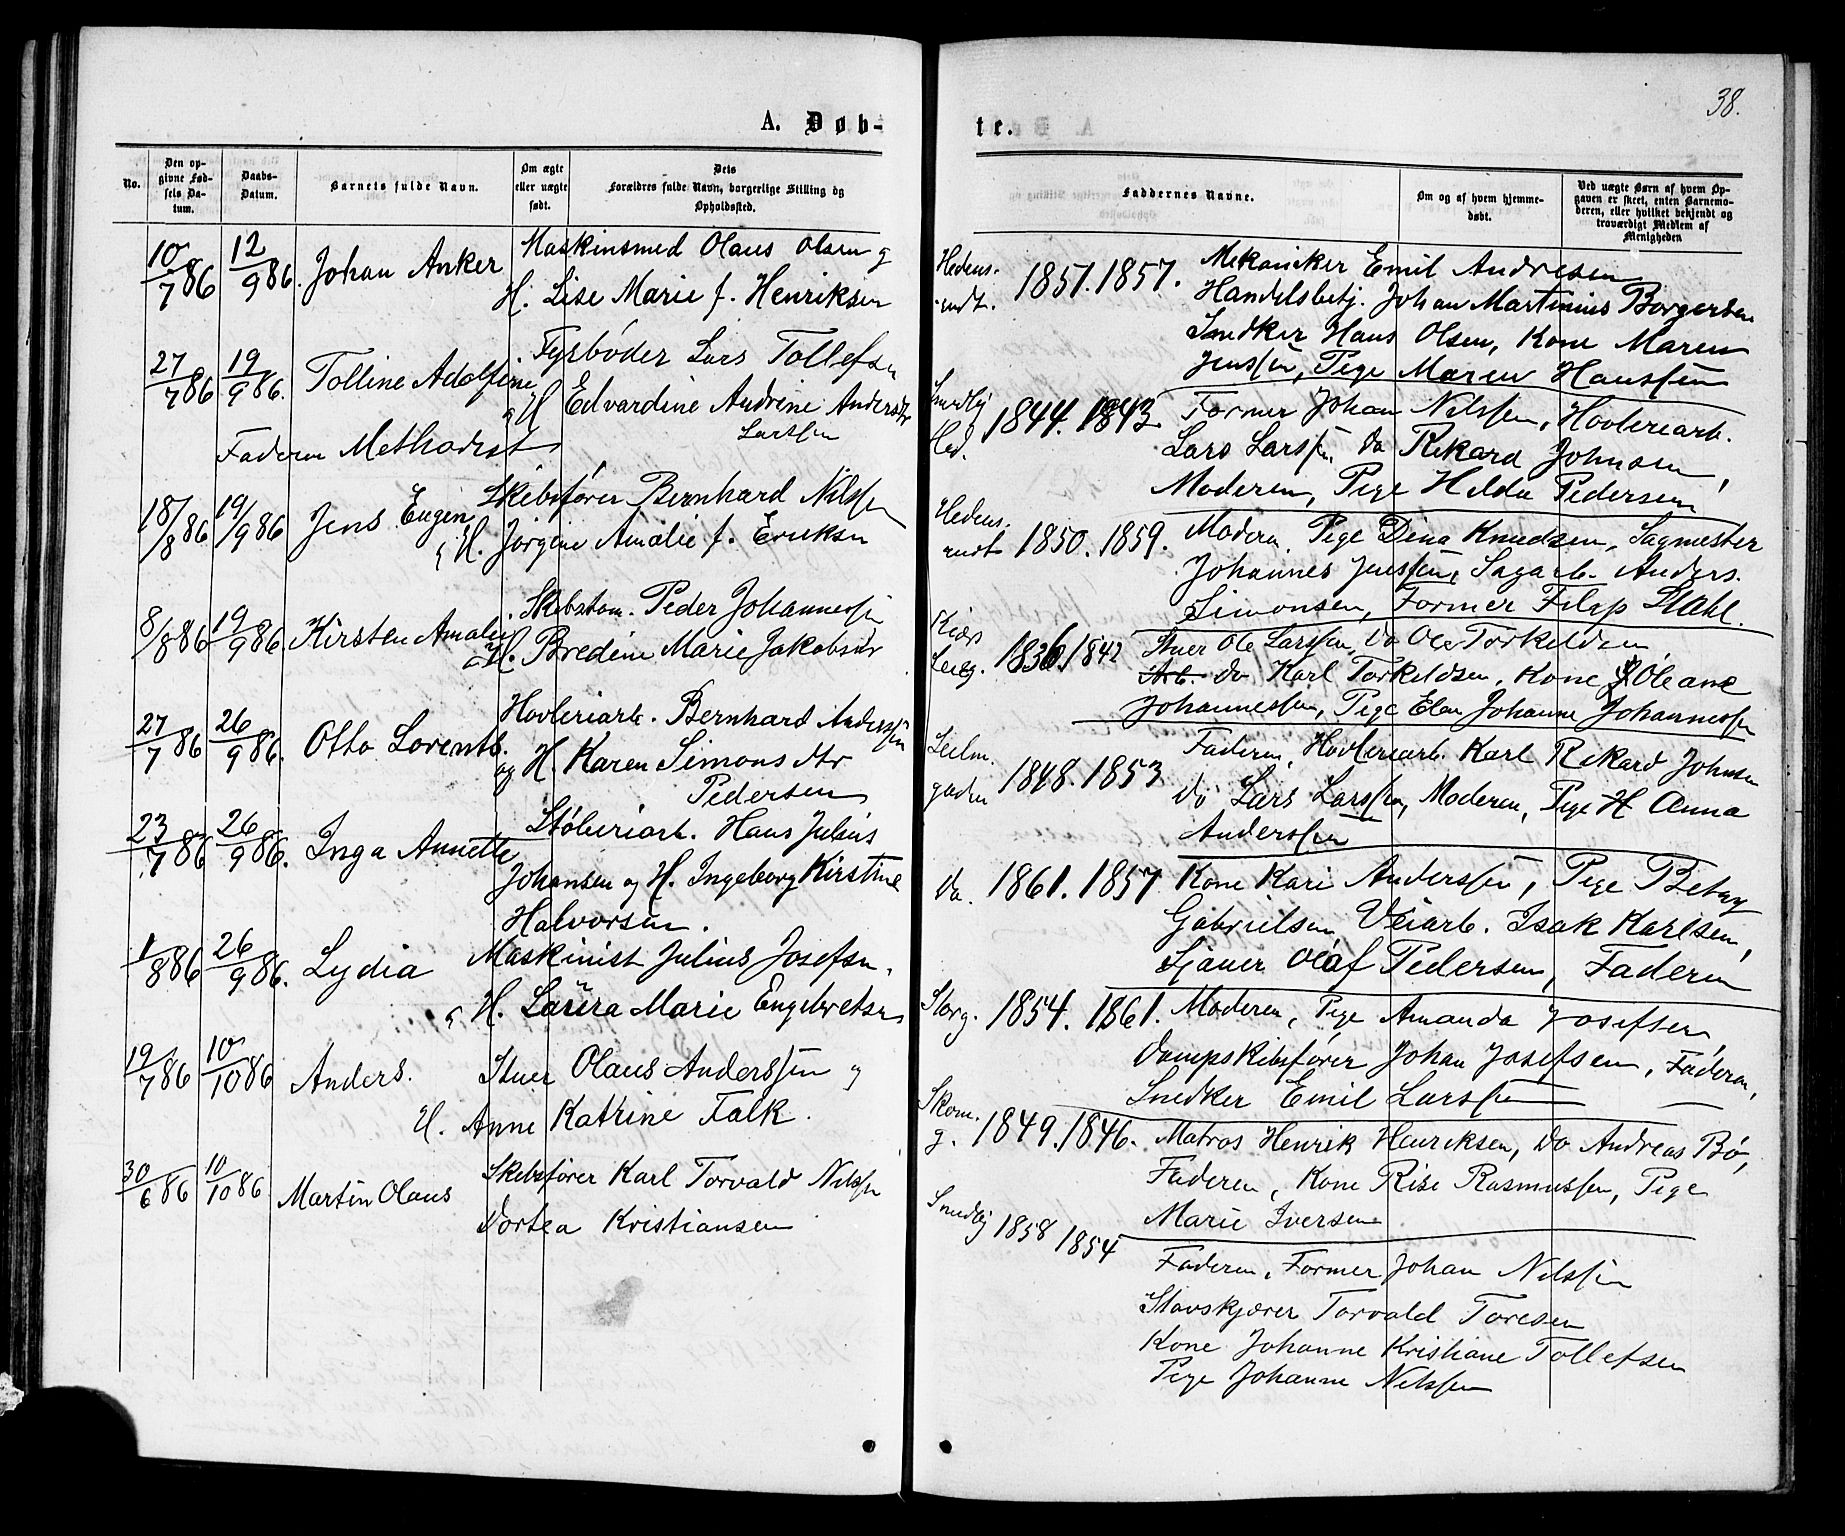 38.
A. Døb-
te.
No.
Den op-
givne Fød-
sels Da-
tum.
Daabs-
Datum.
Barnets fulde Navn.
Om ægte
eller uægte
født.
Dets
Forældres fulde Navn, borgerlige Stilling og
Opholdssted.
Faddernes Navne.
Om og af hvem hjemme-
døbt.
Ved uægte Børn af hvem Op-
gaven er skeet, enten Barnemo-
deren, eller hvilket bekjendt og
troværdigt Medlem af
Menigheden
10/7 86 12/9 86. Johan Anker
Maskinsmed Olaus Olsen og
H. Lise Marie f. Henriksen
Hedens-
rudt. 1851. 1857.
Mekaniker Emil Andresen
Handelsbetj. Johan Martinius Borgersen
Snedker Hans Olsen, Kone Maren
Jenssen, Pige Maren Hanssen
27/7 86 19/9 86. Tolline Adolfine
Fyrbøder Lars Tollefsen
og H Edvardine Andrine Andersdtr
Larssen
Faderen Methodist
Smedbj
Hed. 1844. 1843
Former Johan Nilssen, Høvleriarb.
Lars Larssen, do Rikard Johnsen,
Moderen, Pige Hilda Pedersen
18/8 86 19/9 86 Jens Eugen
Skibsfører Bernhard Nilssen
og H. Jørgine Amalie f. Eriksen
Hedens-
rudt 1850. 1859.
Moderen, Pige Dina Knudsen, Sagmester
Johannes Jenssen, Sagarb. Anders
Simonsen, Former Filip Stahl.
8/8 86 19/9 86. Kirsten Amalie
Skibstøm. Peder Johannessen
og H. Bredine Marie Jakobsdtr
1836. 1842
Stuer Ole Larssen, do Ole Torkeldsen
Arb. do Karl Torkeldsen, Kone Oleane
Johannessen, Pige Elen Johanne Johannessen
27/7 86 26/9 86. Otto Lorents.
Høvleriarb. Bernhard Anderssen
og H. Karen Simonsdtr
Pedersen
gaden 1848. 1853
Faderen, Høvleriarb. Karl Rikard Johnsen
do Lars Larssen, Moderen, Pige H Anna
Anderssen
23/7 86 26/9 86. Inga Annette
Støberiarb. Hans Julius
Johansen og H. Ingeborg Kirstine
Halvorsen.
do. 1861. 1857
Kone Kari Anderssen, Pige Betzy
Gabrielsen Veiarb. Isak Karlsen,
Sjauer Olaf Pedersen, Faderen
1/8 86 26/9 86. Lydia
Maskinist Julius Josefsen.
og H. Laura Marie Engebretsen
Storg. 1854. 1861.
Moderen, Pige Amanda Josefsen,
Dampskibsfører Johan Josefsen, Faderen,
Snedker Emil Larssen
19/7 86 10/10 86 Anders.
Stuer Olaus Anderssen og
H. Anne Katrine Falk.
Skom.
g. 1849. 1846.
Matros Henrik Henriksen, do Andreas Bø,
Faderen, Kone Rise Rasmussen, Pige
Marie Iversen
30/6 86 10/10 86 Martin Olaus
Skibsfører Karl Torvald Nilssen
Dortea Kristiansen
Smedbj 1858 1854
Faderen, Former Johan Nilssen
Stavskjærer Torvald Toresen
Kone Johanne Kristiane Tollefsen
Pige Johanne Nilssen